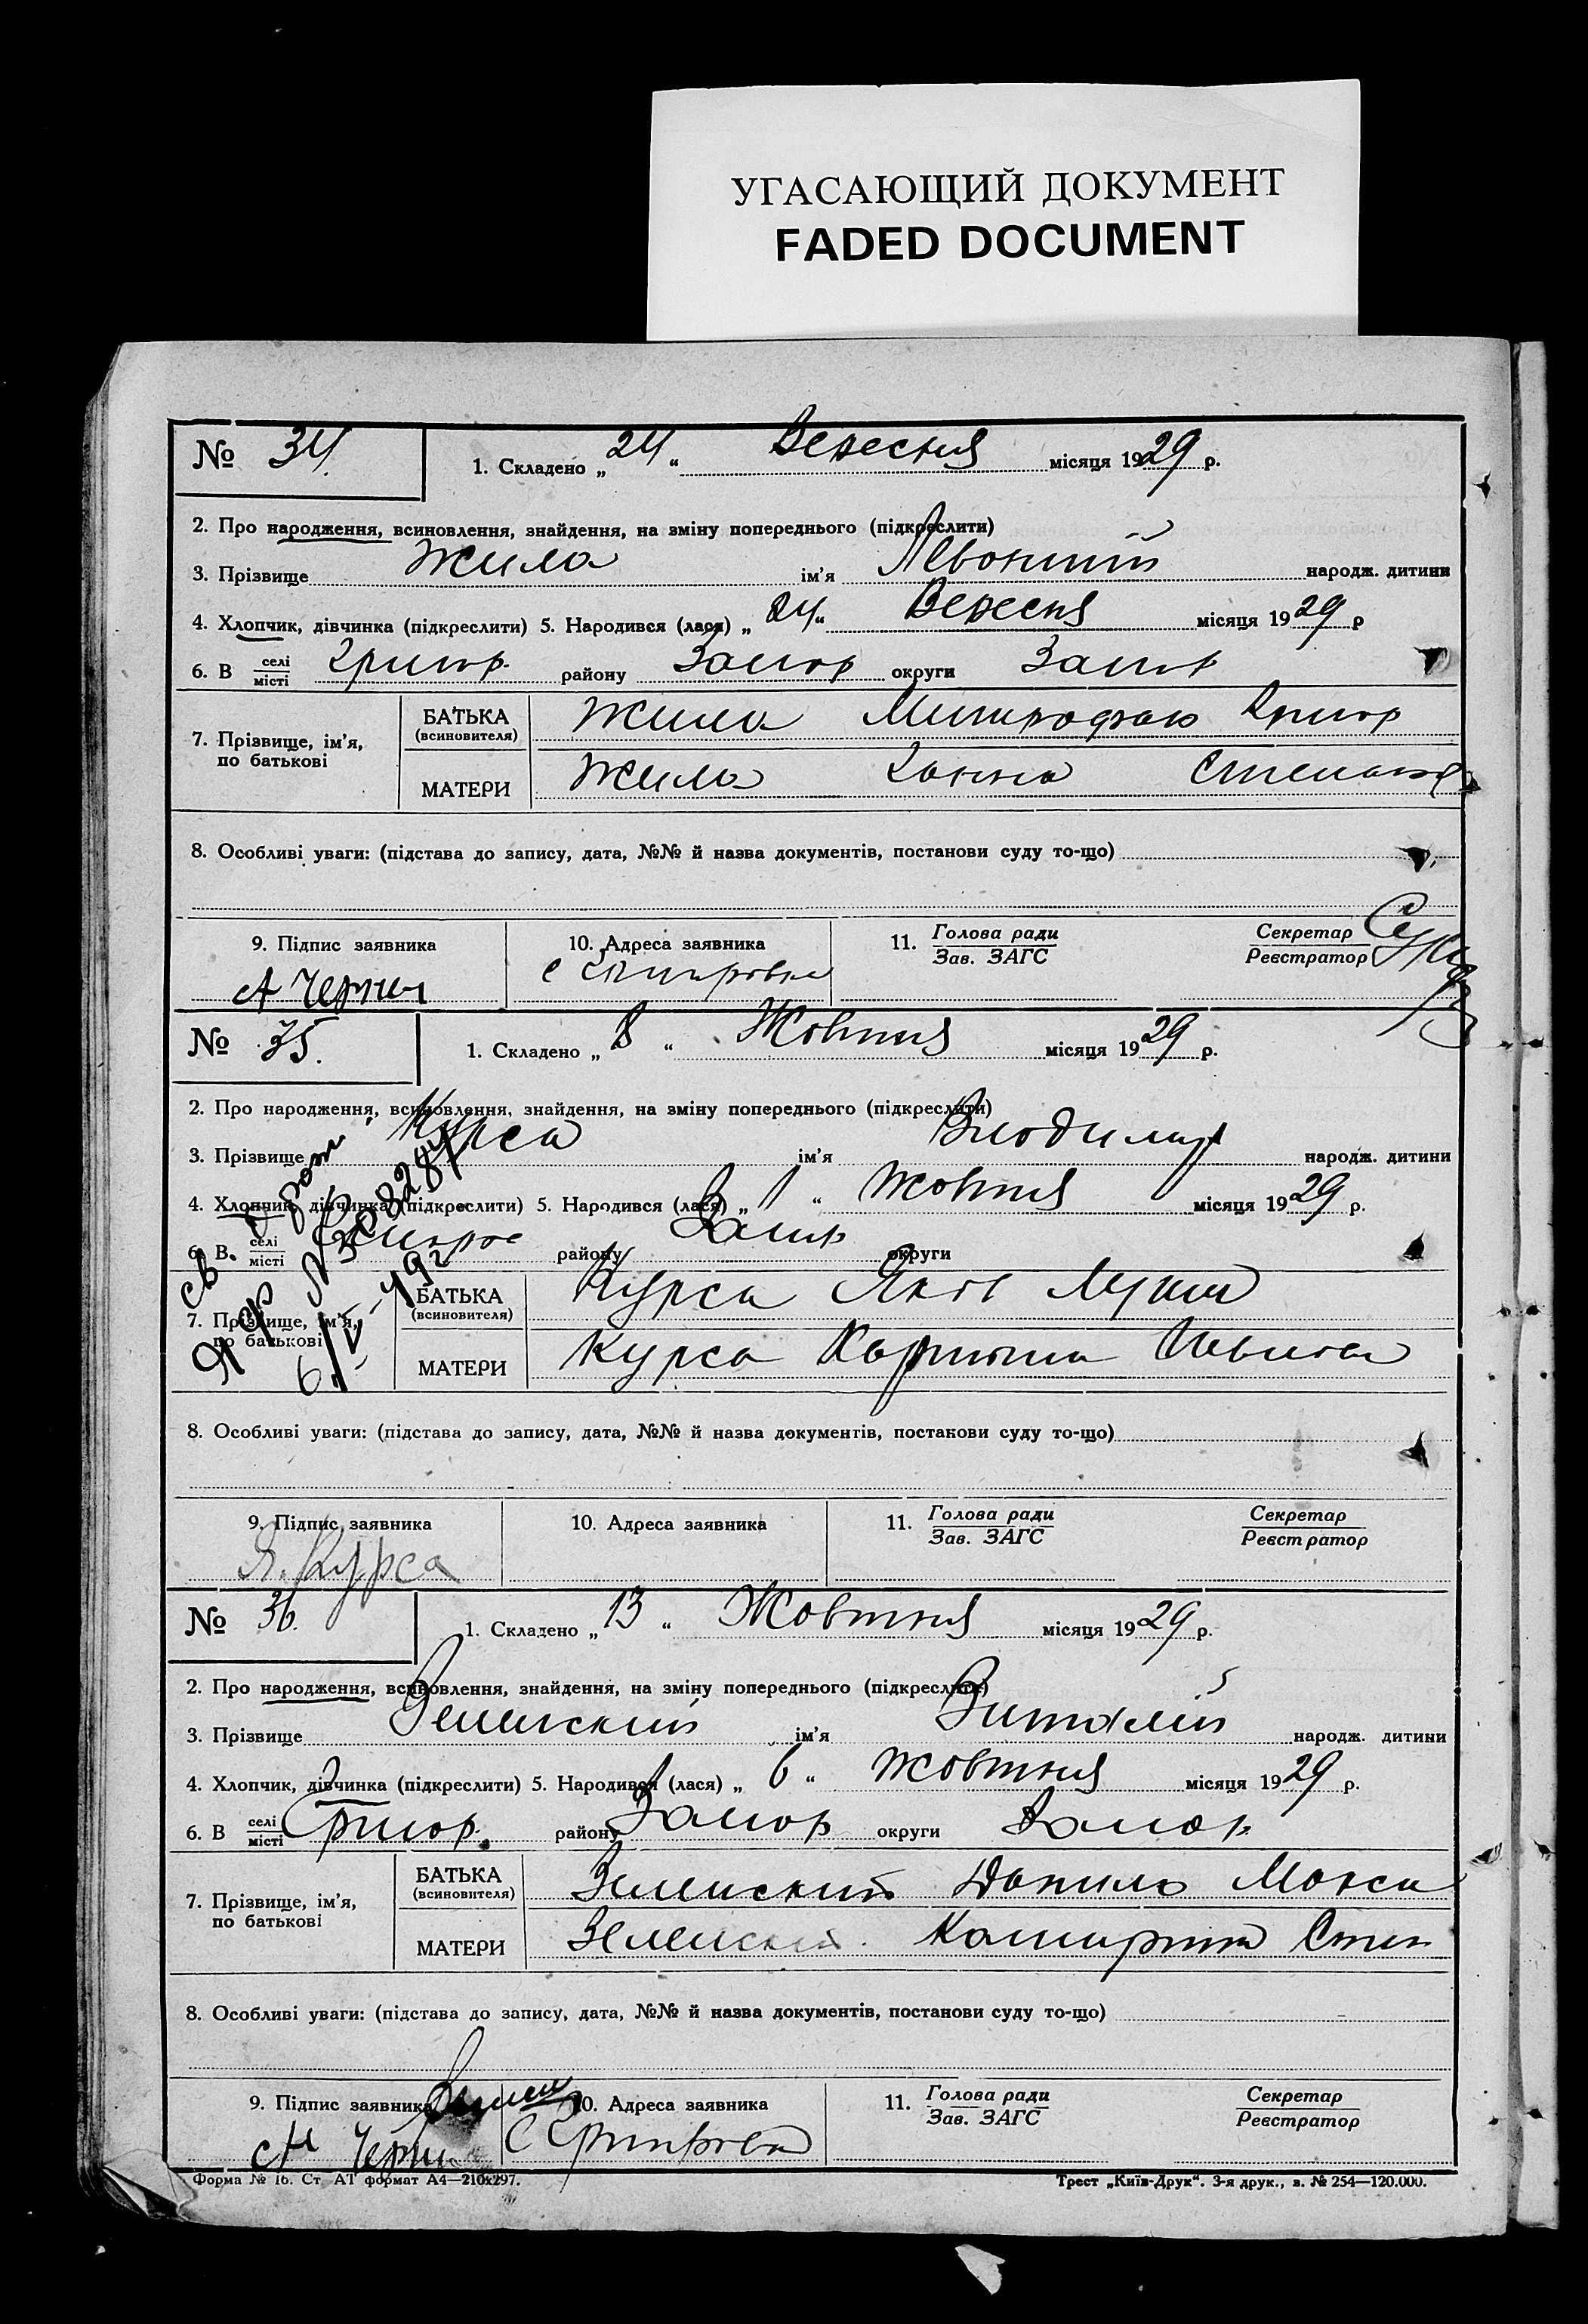 УГАСАЮЩИЙ ДОКУМЕНТ
FADED DOCUMENT
№ 34.
1. Складено „24“ Вересня місяця 1929 р.
2. Про народження, всиновлення, знайдення, на зміну попереднього (підкреслити)
3. Прізвище Жила ім’я народж. дитини
4. Хлопчик, дівчинка (підкреслити) 5. Народився (лася) „24“ Вересня місяця 1929 р
6. В селі місті Григор. району Запор округи Запор
7. Прізвище, ім’я, по батькові
БАТЬКА (всиновителя) Жила Митрофан Григор
МАТЕРИ Жила Ганна Степановн
8. Особливі уваги: (підстава до запису, дата, №№ й назва документів, постанови суду то-що)
9. Підпис заявника
10. Адреса заявника
11. Голова ради Зав. ЗАГС
Секретар Реєстратор
А Черни
№ 35.
1. Складено „8“ Жовтня місяця 1929 р.
2. Про народження, всиновлення, знайдення, на зміну попереднього (підкреслити)
3. Прізвище Курса ім’я Володимир народж. дитини
4. Хлопчик, дівчинка (підкреслити) 5. Народився (лася) „1“ Жовтня місяця 1929 р.
6. В селі місті району Запор округи
7. Прізвище, ім’я, по батькові
БАТЬКА (всиновителя) Курса Яків
МАТЕРИ Курса
8. Особливі уваги: (підстава до запису, дата, №№ й назва документів, постанови суду то-що)
9. Підпис заявника
10. Адреса заявника
11. Голова ради Зав. ЗАГС
Секретар Реєстратор
Я. Курса
№ 36.
1. Складено „13“ Жовтня місяця 1929 р.
2. Про народження, всиновлення, знайдення, на зміну попереднього (підкреслити)
3. Прізвище Зеленский ім’я Виталій народж. дитини
4. Хлопчик, дівчинка (підкреслити) 5. Народився (лася) „6“ Жовтня місяця 1929 р.
6. В селі місті Григор. району Запор округи Запор
7. Прізвище, ім’я, по батькові
БАТЬКА (всиновителя) Зеленский Данило Макси
МАТЕРИ Зеленска Катирина Степ
8. Особливі уваги: (підстава до запису, дата, №№ й назва документів, постанови суду то-що)
9. Підпис заявника
10. Адреса заявника
11. Голова ради Зав. ЗАГС
Секретар Реєстратор
Черни
Форма № 16. Ст. А1 формат А4—210х297.
Трест „Київ-Друк“. 3-я друк., з. № 254—120.000.